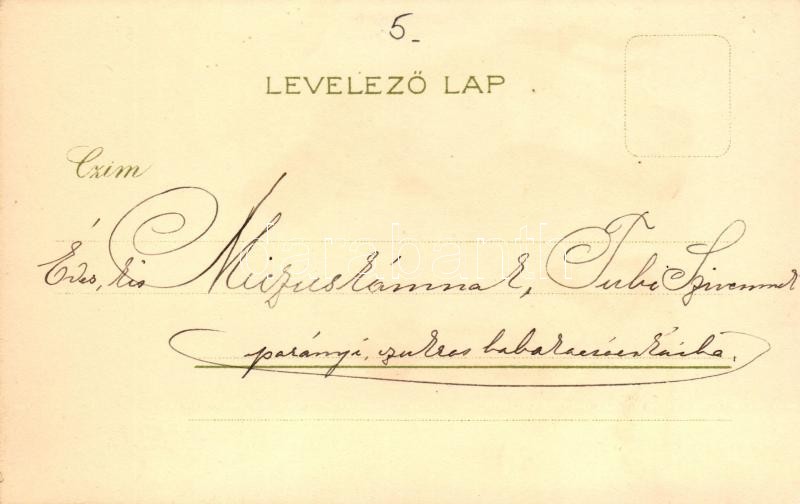 5
LEVELEZŐ LAP
Czim
Édes, kis Muczuskámnak, Tubi Szivemnek
parányi, czukros babakacsócskáiba.